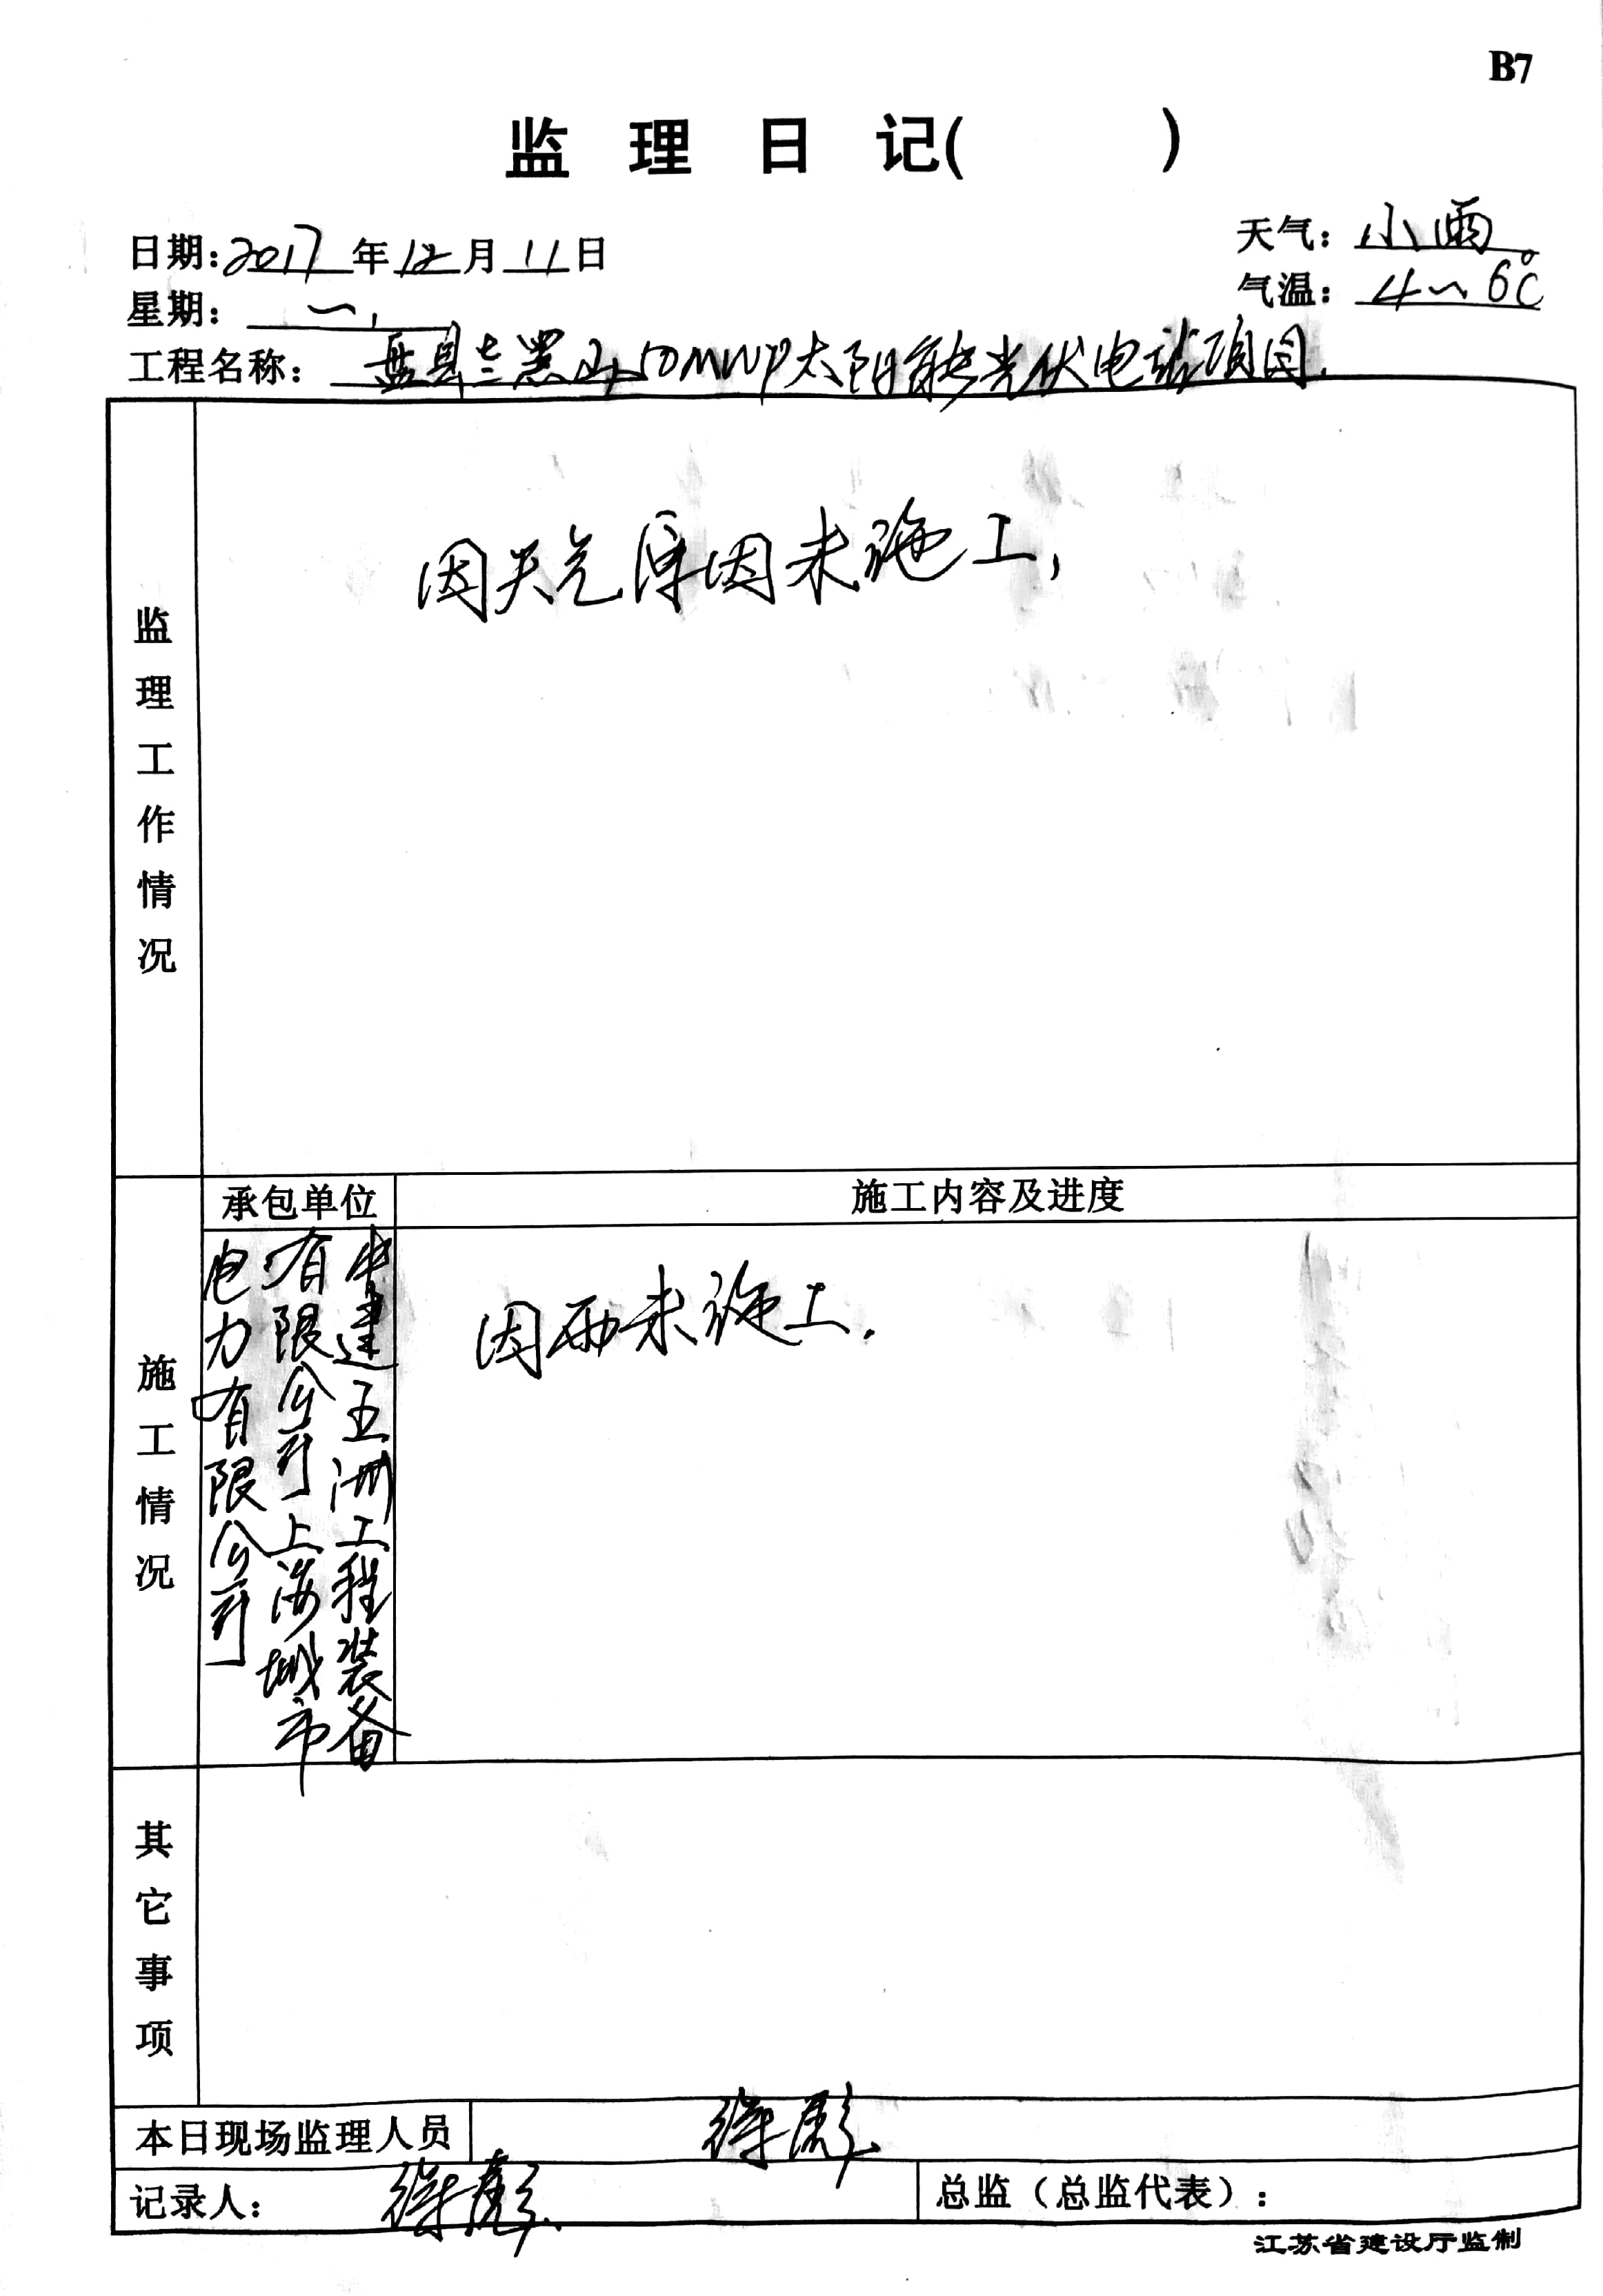 B7
监理日记(          )
日期:2017年12月11日
天气:小雨
星期:一.
气温:4~6℃
工程名称:盘县兰黑山50MWP太阳能光伏电站项目.
监理工作情况
因天气原因未施工,
承包单位
施工内容及进度
施工情况
中建五洲工程装备
有限公司上海城市
电力有限公司
因雨未施工.
其它事项
本日现场监理人员
徐彪
记录人:徐彪
总监(总监代表):
江苏省建设厅监制